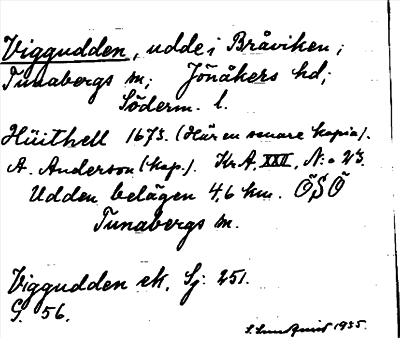 Viggudden, udde i Bråviken;
Tunabergs sn; Jönåkers hd;
Söderm. l.
Hüithell 1673. (Här en senare kopia).
A. Anderson (kop.). Kr A, XXII, N:o 23.
Udden belägen 4,6 km. ÖSÖ
Tunabergs sn.
Viggudden ek, Sj. 251.
G. 56.
S. Lundquist 1935.